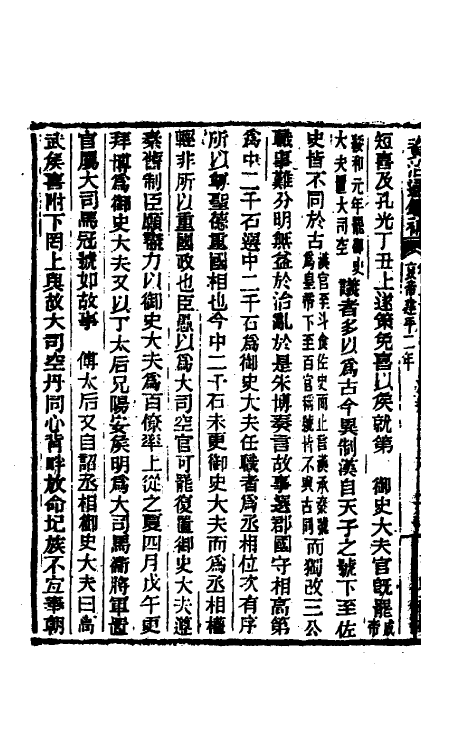 資治通鑑補
哀帝建平二年
短喜及孔光丁丑上遂策免喜以矦就第　御史大夫官旣罷成帝
綏和元年罷御史大夫置大司空議者多以為古今異制漢自天子之號下至佐
史皆不同於古漢官至斗食佐史而止言漢承秦號為皇帝下至百官稱號皆不與古同而獨改三公
職事難分明無益於治亂於是朱博奏言故事選郡國守相高第
為中二千石選中二千石為御史大夫任職者為丞相位次有序
所以尊聖德重國相也今中二千石未更御史大夫而為丞相權
輕非所以重國政也臣愚以為大司空官可罷復置御史大夫遵
奉舊制臣願盡力以御史大夫為百僚率上從之夏四月戊午更
拜博為御史大夫又以丁太后兄陽安矦明為大司馬衞將軍置
官屬大司馬冠號如故事　傅太后又自詔丞相御史大夫曰高
武矦喜附下罔上與故大司空丹同心背畔放命圮族不宜奉朝